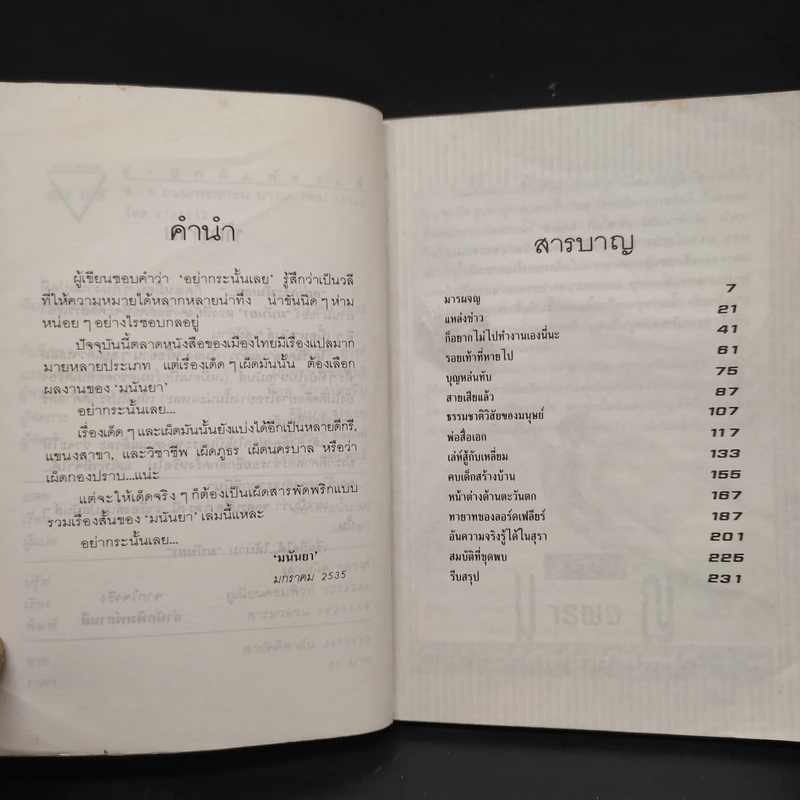 คำนำ
ผู้เขียนชอบคำว่า 'อย่ากระนั้นเลย' รู้สึกว่าเป็นวลี
ที่ให้ความหมายได้หลากหลายน่าทึ่ง น่าขันนิดๆห่าม
หน่อยๆอย่างไรชอบกลอยู่
ปัจจุบันนี้ตลาดหนังสือของเมืองไทยมีเรื่องแปลมาก
มายหลายประเภท แต่เรื่องเด็ดๆเผ็ดมันนั้น ต้องเลือก
ผลงานของ 'มนันยา'
อย่ากระนั้นเลย...
เรื่องเด็ดๆและเผ็ดมันนั้นยังแบ่งได้อีกเป็นหลายดีกรี,
แขนงสาขา, และวิชาชีพ เผ็ดภูธร เผ็ดนครบาล หรือว่า
เผ็ดกองปราบ...แน่ะ
แต่จะให้เด็ดจริงๆก็ต้องเป็นเผ็ดสารพัดพริกแบบ
รวมเรื่องสั้นของ 'มนันยา' เล่มนี้แหละ
อย่ากระนั้นเลย...
'มนันยา'
มกราคม 2535
สารบาญ
มารผจญ 7
แหล่งข่าว 21
ก็อยากไม่ไปทำงานเองนี่นะ 41
รอยเท้าที่หายไป 61
บุญหล่นทับ 75
สายเสียแล้ว 87
ธรรมชาติวิสัยของมนุษย์ 107
พ่อสื่อเอก 117
เล่ห์สู้กับเหลี่ยม 133
คบเด็กสร้างบ้าน 155
หน้าต่างด้านตะวันตก 167
ทายาทของลอร์ดเฟลียร์ 187
อันความจริงรู้ได้ในสุรา 201
สมบัติที่ขุดพบ 225
รีบสรุป 231